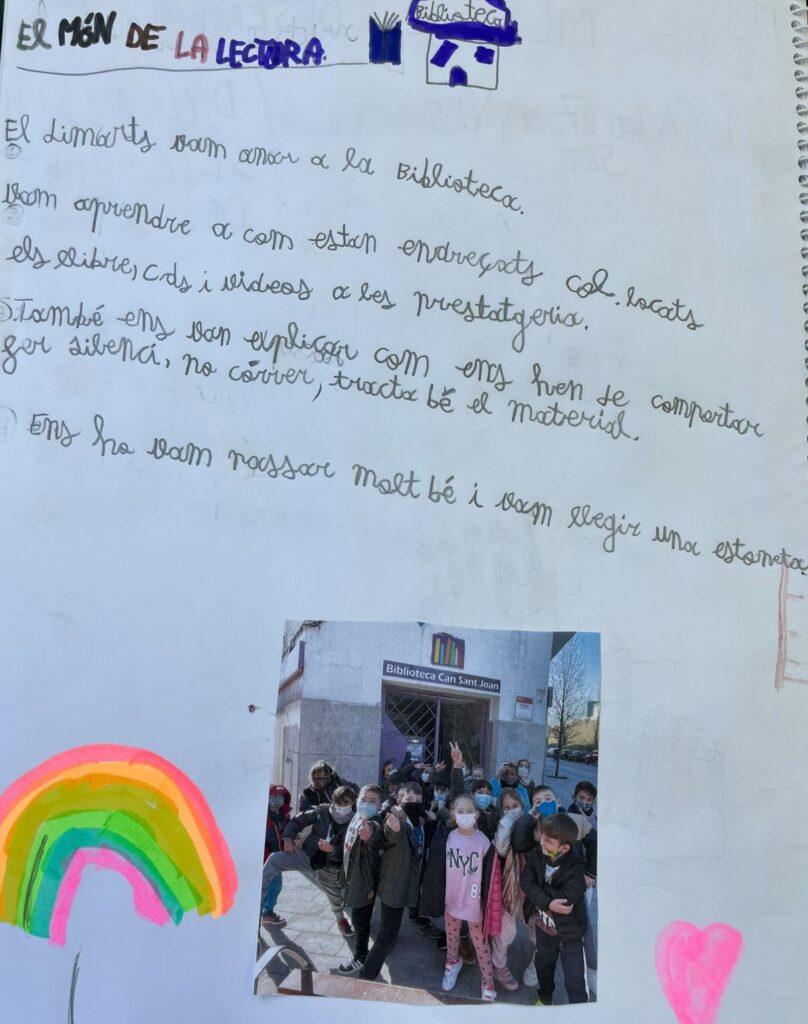 El MÓN DE LA LECTURA.
Biblioteca
El dimarts vam anar a la Biblioteca.
①
Vam aprendre a com estan endreçats col.locats
②
els llibre, cds i videos a les prestatgeria.
3. També ens van explicar com ens hem de comportar
fer silenci, no córrer, tracta bé el material.
Ens ho vam passar molt bé i vam llegir una estoneta.
Biblioteca Can Sant Joan
NYC